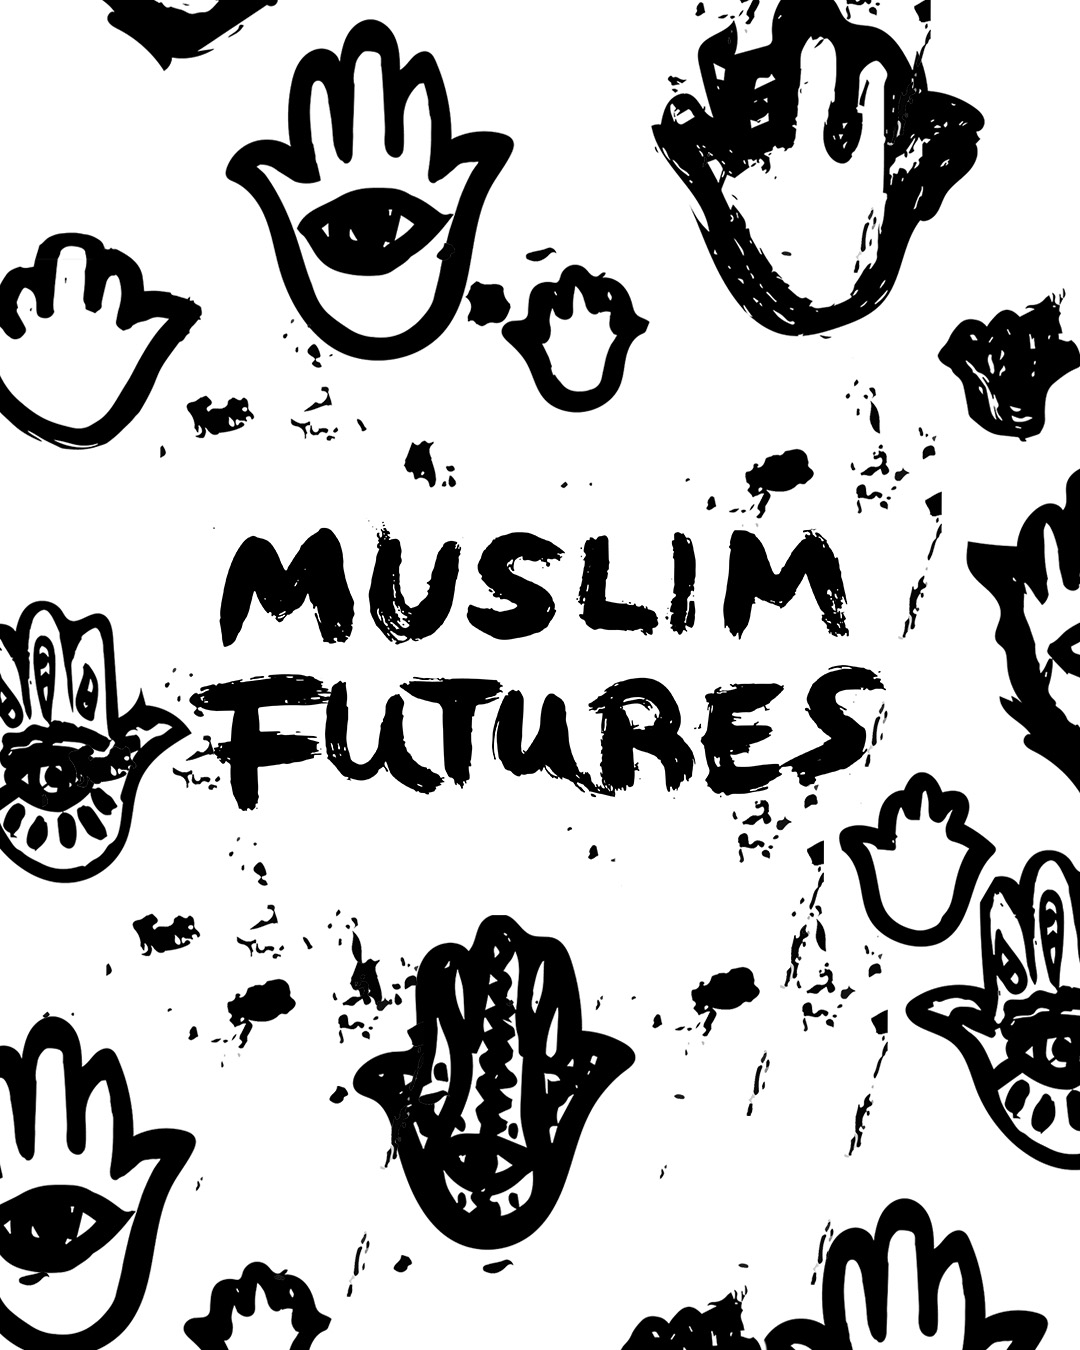 MUSLIM
FUTURES